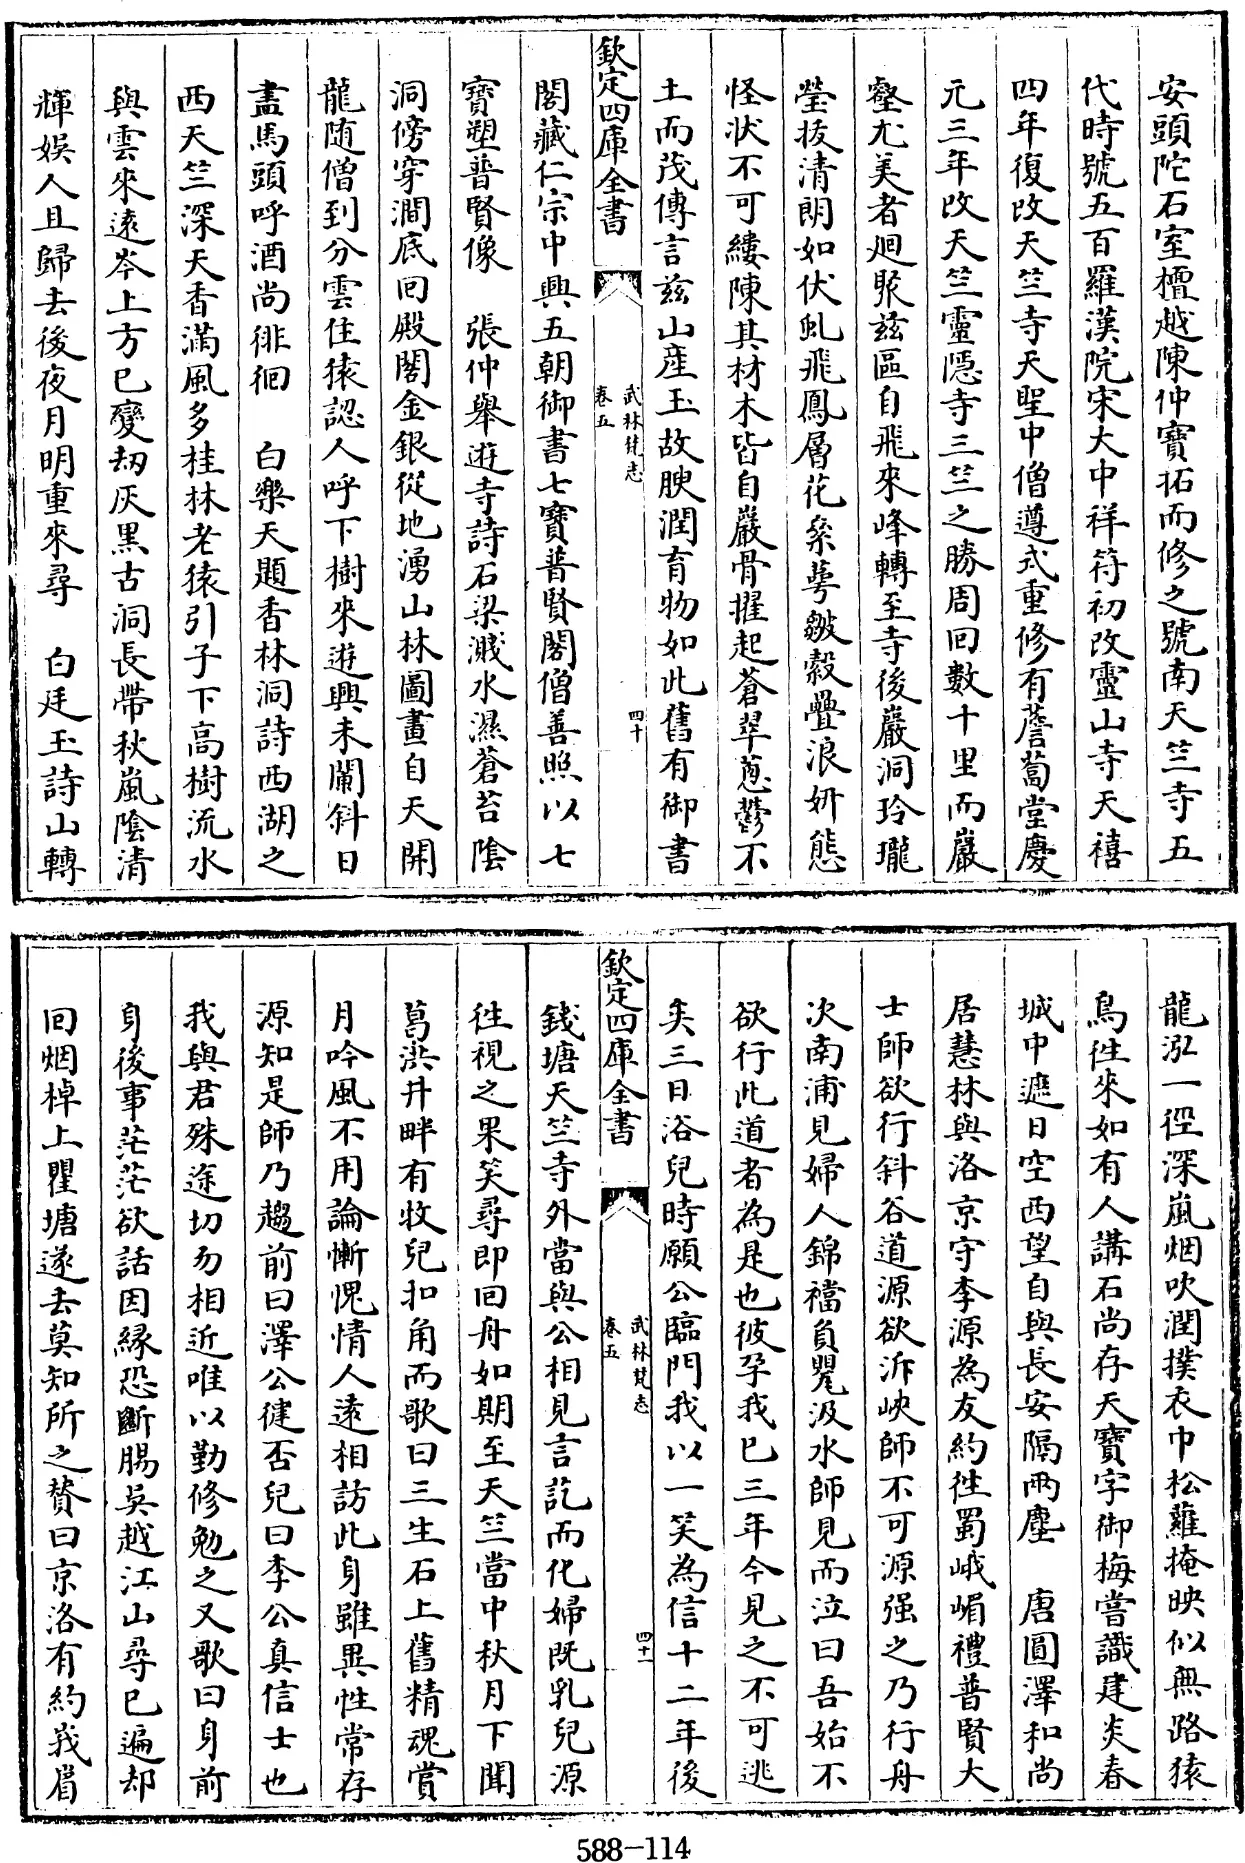 安頭陀石室檀越陳仲寶拓而修之號南天竺寺五
代時號五百羅漢院宋大中祥符初改靈山寺天禧
四年復改天竺寺天聖中僧遵式重修有薝蔔堂慶
元三年改天竺靈隱寺三竺之勝周回數十里而巖
壑尤美者廻聚兹區自飛來峰轉至寺後巖洞玲瓏
瑩抜清朗如伏虬飛鳳層花叅萼皴縠疊浪妍態
怪狀不可縷陳其材木皆自巖骨擢起蒼翠蔥鬱不
土而茂傳言兹山產玉故腴潤育物如此舊有御書
欽定四庫全書
武林梵志
卷五
四十
閣藏仁宗中興五朝御書七寶普賢閣僧善照以七
寶塑普賢像 張仲舉遊寺詩石梁濺水濕蒼苔陰
洞傍穿澗底回殿閣金銀從地湧山林圖畫自天開
龍随僧到分雲住猿認人呼下樹來遊興未闌斜日
盡馬頭呼酒尚徘徊 白樂天題香林洞詩西湖之
西天竺深天香滿風多桂林老猿引子下高樹流水
與雲來遠岑上方已變刼灰黑古洞長帶秋嵐陰清
輝娱人且歸去後夜月明重來尋 白廷玉詩山轉
龍泓一徑深嵐烟吹潤撲衣巾松蘿掩映似無路猿
鳥徃來如有人講石尚存天寶字御梅嘗識建炎春
城中遮日空西望自與長安隔兩塵 唐圓澤和尚
居慧林與洛京守李源為友約徃蜀峨嵋禮普賢大
士師欲行斜谷道源欲泝峽師不可源强之乃行舟
次南浦見婦人錦襠負甖汲水師見而泣曰吾始不
欲行此道者為是也彼孕我已三年今見之不可逃
矣三日浴兒時願公臨門我以一笑為信十二年後
欽定四庫全書
武林梵志
卷五
四十一
錢塘天竺寺外當與公相見言訖而化婦既乳兒源
徃視之果笑尋即回舟如期至天竺當中秋月下聞
葛洪井畔有牧兒扣角而歌曰三生石上舊精魂賞
月吟風不用論慚愧情人遠相訪此身雖異性常存
源知是師乃趨前曰澤公徤否兒曰李公真信士也
我與君殊途切勿相近唯以勤修勉之又歌曰身前
身後事茫茫欲話因緣恐斷腸吳越江山尋已遍却
回烟棹上瞿塘遂去莫知所之賛曰京洛有約峩眉
588-114